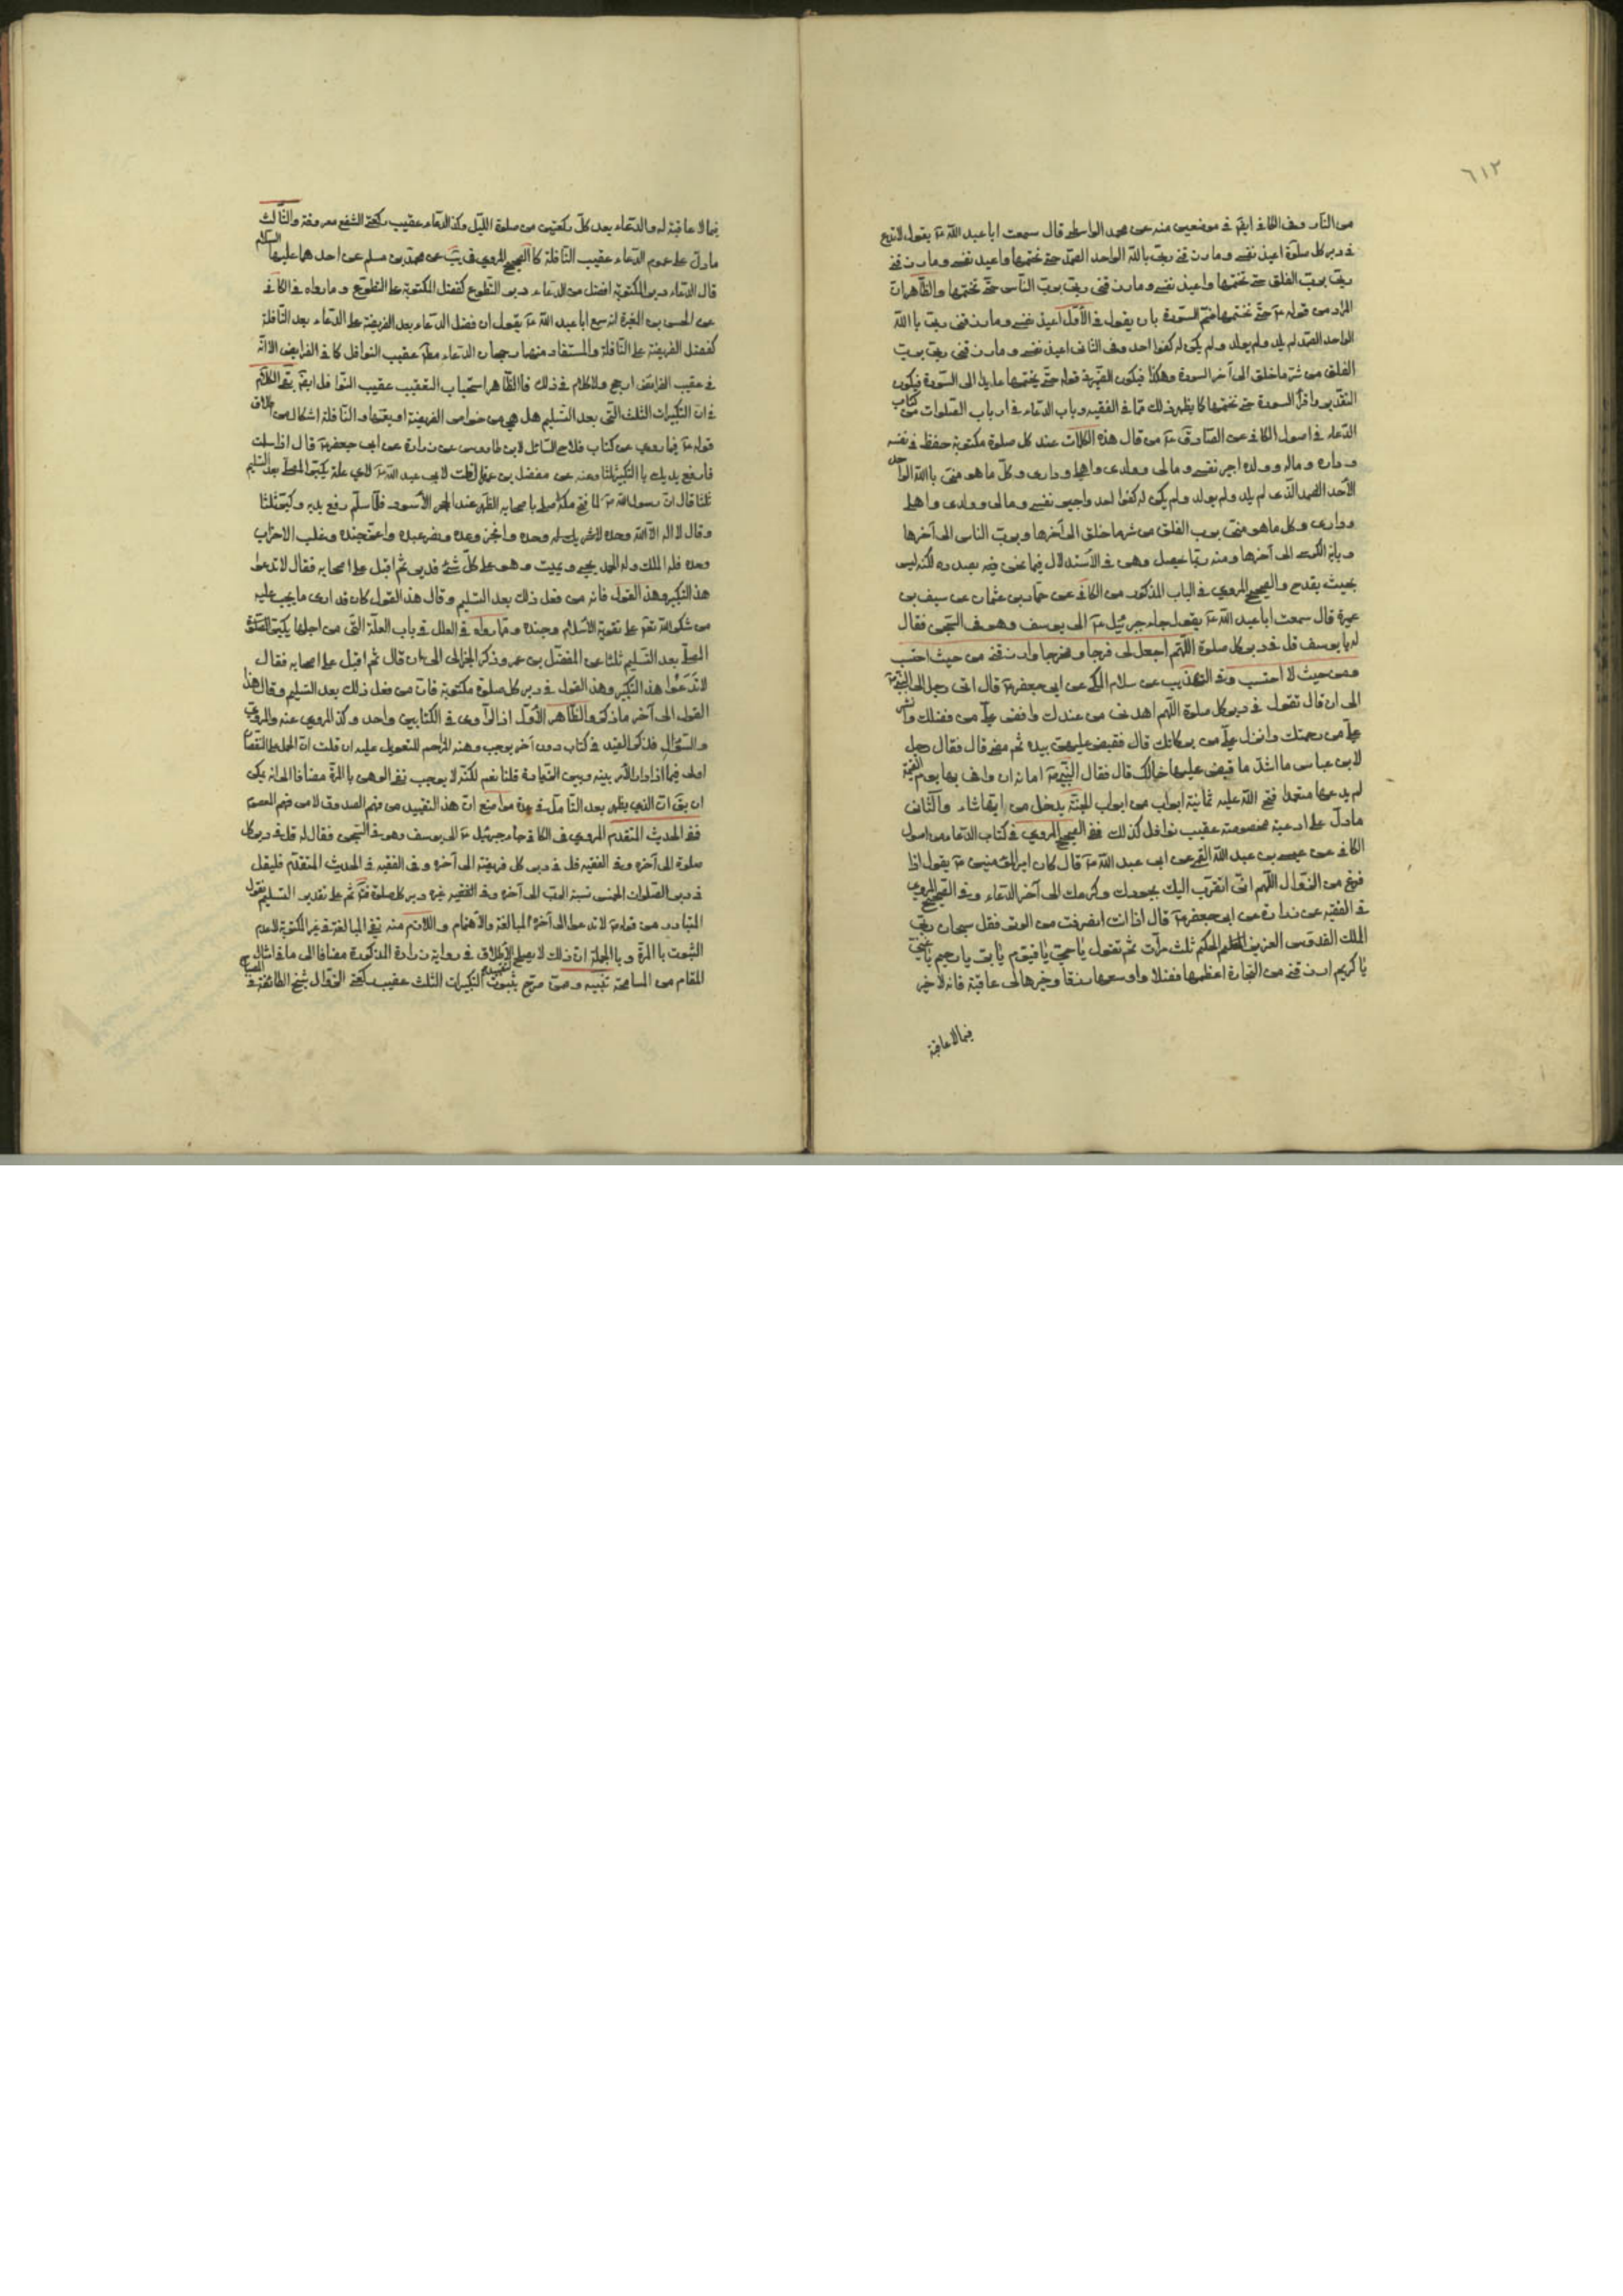 ٦١٢
من النار وفى الكافى ايضا فى موضعين منه عن محمد الواسطى قال سمعت ابا عبد الله ع يقول لا تدع
فى دبر كل صلوة اعيذ نفسى وما رزقنى ربى بالله الواحد الصمد حتى تختمها واعيذ نفسى وما رزقنى
ربى برب الفلق حتى تختمها واعيذ نفسى وما رزقنى ربى برب الناس حتى تختمها والظاهر ان
المراد من قوله ع حتى تختمها ختم السورة بان يقول فى الأول اعيذ نفسى وما رزقنى ربى بالله
الواحد الصمد لم يلد ولم يولد ولم يكن له كفوا احد وفى الثانى اعيذ نفسى وما رزقنى ربى برب
الفلق من شر ما خلق الى آخر السورة وهكذا فيكون الضمير فى قوله حتى يختمها عايدا الى السورة فيكون
التقدير واقرأ السورة حتى تختمها كما يظهر ذلك مما فى الفقيه وباب الدعاء فى ادبار الصلوات من كتاب
الدعاء فى اصول الكافى عن الصادق ع من قال هذه الكلمات عند كل صلوة مكتوبة حفظ فى نفسه
وداره وماله وولده اجير نفسى ومالى وولدى واهلى ودارى وكل ما هو منى بالله الواحد
الأحد الصمد الذى لم يلد ولم يولد ولم يكن له كفوا احد واجير نفسى ومالى وولدى واهلى
ودارى وكل ما هو منى برب الفلق من شر ما خلق الى آخرها وبرب الناس الى آخرها
وباية الكرسى الى آخرها ومنه ربما يحصل وهن فى الاستدلال فيما نحن فيه بصدده لكنه ليس
بحيث يقدح والصحيح المروى فى الباب المذكور من الكافى عن حماد بن عثمان عن سيف بن
عميرة قال سمعت ابا عبد الله ع يقول جاء جبرئيل ع الى يوسف وهو فى السجن فقال
له يا يوسف قل فى دبر كل صلوة اللهم اجعل لى فرجا ومخرجا وارزقنى من حيث احتسب
ومن حيث لا احتسب وفى التهذيب عن سلام المكى عن ابى جعفر ع قال اتى رجل الى النبى ص
الى ان قال تقول فى دبر كل صلوة اللهم اهدنى من عندك وافض على من فضلك وانشر
على من رحمتك وانزل على من بركاتك قال فقبض عليهن بيده ثم مضى قال فقال رجل
لابن عباس ما اشد ما قبض عليها خالك قال فقال النبى ص اما انه ان وافى بها يوم القيمة
لم يدعها متعمدا فتح الله عليه ثمانية ابواب من ابواب الجنة يدخل من ايها شاء والثانى
ما دل على ادعية مخصوصة عقيب نوافل كذلك ففى الصحيح المروى فى كتاب الدعاء من اصول
الكافى عن عيسى بن عبد الله القمى عن ابى عبد الله ع قال كان امير المؤمنين ع يقول اذا
فرغ من الزوال اللهم انى اتقرب اليك بجودك وكرمك الى آخر الدعاء وفى الصحيح المروى
فى الفقيه عن زرارة عن ابى جعفر ع قال اذا انت انصرفت من الوتر فقل سبحان ربى
الملك القدوس العزيز الحكيم ثلث مرات ثم تقول يا حى يا قيوم يا بر يا رحيم يا غنى
يا كريم ارزقنى من التجارة اعظمها فضلا واوسعها رزقا وخيرها لى عاقبة فانه لا خير
فيما لا عاقبة
فيما لا عاقبة له والدعاء بعد كل ركعتين من صلوة الليل وكذا الدعاء عقيب ركعتى الشفع معروفة والثالث
ما دل على عموم الدعاء عقيب النافلة كالصحيح المروى فى يب عن محمد بن مسلم عن احدهما عليهما السلام
قال الدعاء دبر المكتوبة افضل من الدعاء دبر التطوع كفضل المكتوبة على التطوع وما رواه فى الكافى
عن الحسن بن المغيرة انه سمع ابا عبد الله ع يقول ان فضل الدعاء بعد الفريضة على الدعاء بعد النافلة
كفضل الفريضة على النافلة والمستفاد منها رجحان الدعاء مطلقا عقيب النوافل كما فى الفرايض الا انه
فى عقيب الفرائض ارجح ولا كلام فى ذلك فالظاهر استحباب التعقيب عقيب النوافل ايضا بقى الكلام
فى ان التكبيرات الثلث التى بعد التسليم هل هى من خواص الفريضة او يعمها والنافلة اشكال من اطلاق
قوله ع فيما روى عن كتاب فلاح السائل لابن طاووس عن زرارة عن ابى جعفر ع قال اذا سلمت
فارفع يديك بالتكبير ثلثا ومنه عن مفضل بن عمر قال قلت لابى عبد الله ع لاى علة يكبر المصلى بعد التسليم
ثلثا قال ان رسول الله ص لما فتح مكة صلى باصحابه الظهر عند الحجر الأسود فلما سلم رفع يديه وكبر ثلثا
وقال لا اله الا الله وحده لا شريك له وحده وانجز وعده ونصر عبده واعز جنده وغلب الاحزاب
وحده فله الملك وله الحمد يحيى ويميت وهو على كل شئ قدير ثم اقبل على اصحابه فقال لا تدعوا
هذا التكبير وهذا القول فانه من فعل ذلك بعد التسليم وقال هذا القول كان قد ادى ما يجب عليه
من شكر الله تعالى على تقوية الاسلام وجنده ومما رواه فى العلل فى باب العلة التى من اجلها يكبر المصلى
المصلى بعد التسليم ثلثا عن المفضل بن عمر وذكر الى ان قال ثم اقبل على اصحابه فقال
لا تدعوا هذا التكبير وهذا القول فى دبر كل صلوة مكتوبة فان من فعل ذلك بعد التسليم وقال هذا
القول الى آخر ما ذكر والظاهر الأول اذ الراوى فى الكتابين واحد وكذا المروى عنه والمروى
والسؤال فذكر القيد فى كتاب دون آخر يوجب وهنه المزاحم للتعويل عليه ان قلت ان الحمل على النقصان
اولى فيما اذا دار الأمر بينه وبين الزيادة قلنا نعم لكنه لا يوجب نفى الوهن بالمرة مضافا الى انه يمكن
ان يق ان الذى يظهر بعد التأمل فى عدة مواضع ان هذا التقييد من فهم الصدوق لا من فهم المعصوم
ففى الحديث المتقدم المروى فى الكافى جاء جبرئيل ع الى يوسف وهو فى السجن فقال له قل فى دبر كل
صلوة الى آخره وفى الفقيه قل فى دبر كل فريضة الى آخره وفى الفقيه فى الحديث المتقدم فليقل
فى دبر الصلوات الخمس نسبة الرب الى آخره وفى غيره دبر كل صلوة ثم على تقدير التسليم نقول
المتبادر من قوله ع لا تدعوا الى آخره المبالغة والاهتمام واللازم منه نفى المبالغة فى غير المكتوبة لا عدم
الثبوت بالمرة وبالجملة ان ذلك لا يصلح لتقييد الاطلاق فى رواية زرارة المذكورة مضافا الى ما فى امثال
المقام من المسامحة تنبيه وممن صرح بثبوت التكبيرات الثلث عقيب ركعتى الزوال شيخ الطائفة فى المصباح